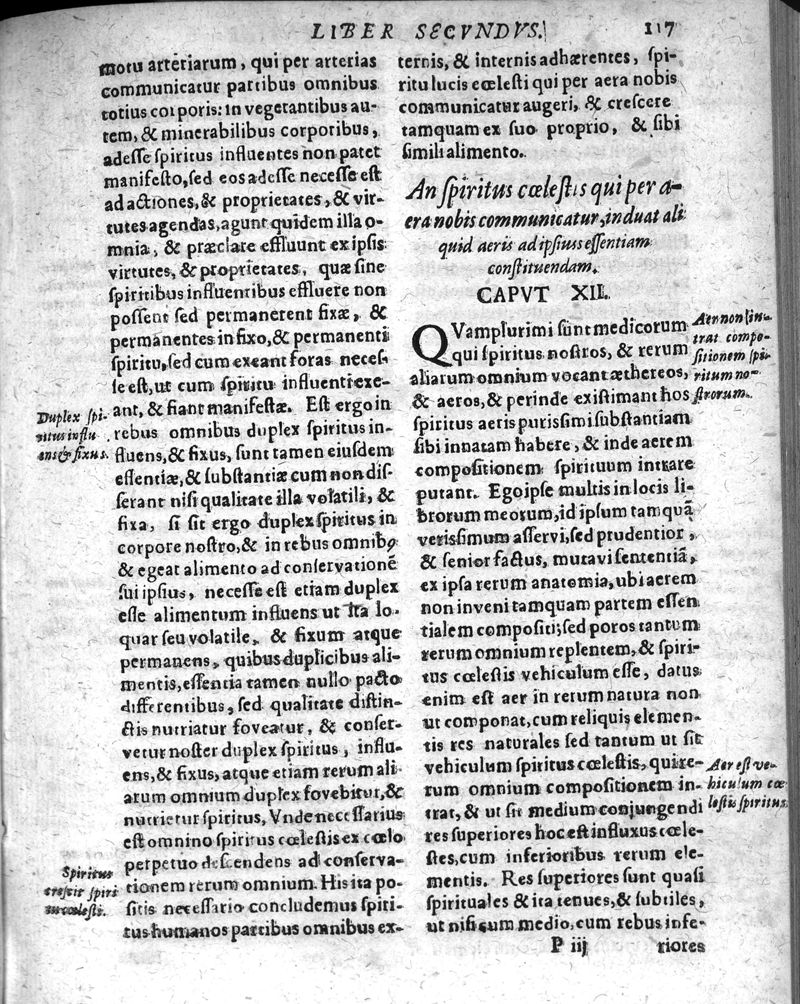 LIBER SECVNDVS. 117
motu arteriarum, qui per arterias
communicatur partibus omnibus
totius corporis: in vegetantibus au-
tem, & minerabilibus corporibus,
adeſſe ſpiritus influentes non patet
manifeſto, ſed eos adeſſe neceſſe eſt
ad actiones, & proprietates, & vir-
tutes agendas, agunt quidem illa o-
mnia, & præclare effluunt ex ipſis
virtutes, & proprietates, quæ ſine
ſpiritibus influentibus effluere non
poſſent ſed permanerent fixæ, &
permanentes in fixo, & permanenti
ſpiritu, ſed cum exeant foras neceſ-
ſe eſt, ut cum ſpiritu influenti exe-
ant, & fiant manifeſtæ. Eſt ergo in
rebus omnibus duplex ſpiritus in-
fluens, & fixus, ſunt tamen eiuſdem
eſſentiæ, & ſubſtantiæ cum non diſ-
ferant niſi qualitate illa volatili, &
fixa, ſi ſit ergo duplex ſpiritus in
corpore noſtro, & in rebus omnibꝰ
& egeat alimento ad conſervationē
ſui ipſius, neceſſe eſt etiam duplex
eſſe alimentum influens ut ita lo-
quar ſeu volatile, & fixum atque
permanens, quibus duplicibus ali-
mentis, eſſentia tamen nullo pacto
differentibus, ſed qualitate diſtin-
ctis nutriatur foveatur, & conſer-
vetur noſter duplex ſpiritus, influ-
ens, & fixus, atque etiam rerum ali
arum omnium duplex fovebitur, &
nutrietur ſpiritus, Vnde neceſſarius
eſt omnino ſpiritus cœleſtis ex cœlo
perpetuo deſcendens ad conſerva-
tionem rerum omnium. His ita po-
ſitis neceſſario concludemus ſpiri-
tus humanos partibus omnibus ex-
Duplex ſpi-
ritus influ
ens & fixus.
Spiritus
creſcit ſpiri
tu cœleſti.
ternis, & internis adhærentes, ſpi-
ritu lucis cœleſti qui per aera nobis
communicatur augeri, & creſcere
tamquam ex ſuo proprio, & ſibi
ſimili alimento.
An ſpiritus cœleſtis qui per a-
era nobis communicatur, induat ali
quid aeris ad ipſius eſſentiam
conſtituendam.
CAPVT XII.
QVamplurimi ſunt medicorum
qui ſpiritus noſtros, & rerum
aliarum omnium vocant æthereos,
& aeros, & perinde exiſtimant hos
ſpiritus aeris puriſſimi ſubſtantiam
ſibi innatam habere, & inde aerem
compoſitionem ſpirituum intrare
putant. Ego ipſe multis in locis li-
brorum meorum, id ipſum tamquā
veriſſimum aſſervi, ſed prudentior,
& ſenior factus, mutavi ſententiā,
ex ipſa rerum anatomia, ubi aerem
non inveni tamquam partem eſſen
tialem compoſiti; ſed poros tantum
rerum omnium replentem, & ſpiri-
tus cœleſtis vehiculum eſſe, datus
enim eſt aer in rerum natura non
ut componat, cum reliquis elemen-
tis res naturales ſed tantum ut ſit
vehiculum ſpiritus cœleſtis, qui re-
rum omnium compoſitionem in-
trat, & ut ſit medium conjungendi
res ſuperiores hoc eſt influxus cœle-
ſtes, cum inferioribus rerum ele-
mentis. Res ſuperiores ſunt quaſi
ſpirituales & ita tenues, & ſubtiles,
ut niſi cum medio, cum rebus infe-
Aer non in-
trat compo-
ſitionem ſpi-
ritum no-
ſtrorum.
Aer eſt ve-
hiculum cœ
leſtis ſpiritus.
P iij riores